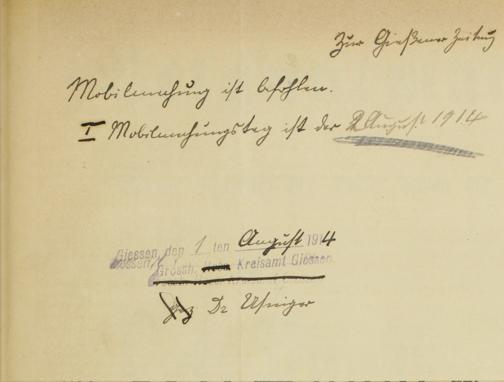 Zur Gießener Zeitung
Mobilmachung ist befohlen.
I Mobilmachungstag ist der 2 August 1914
Giessen, den 1 ten August 1914
Grossh. Hess. Kreisamt Giessen
gez Dr Usinger